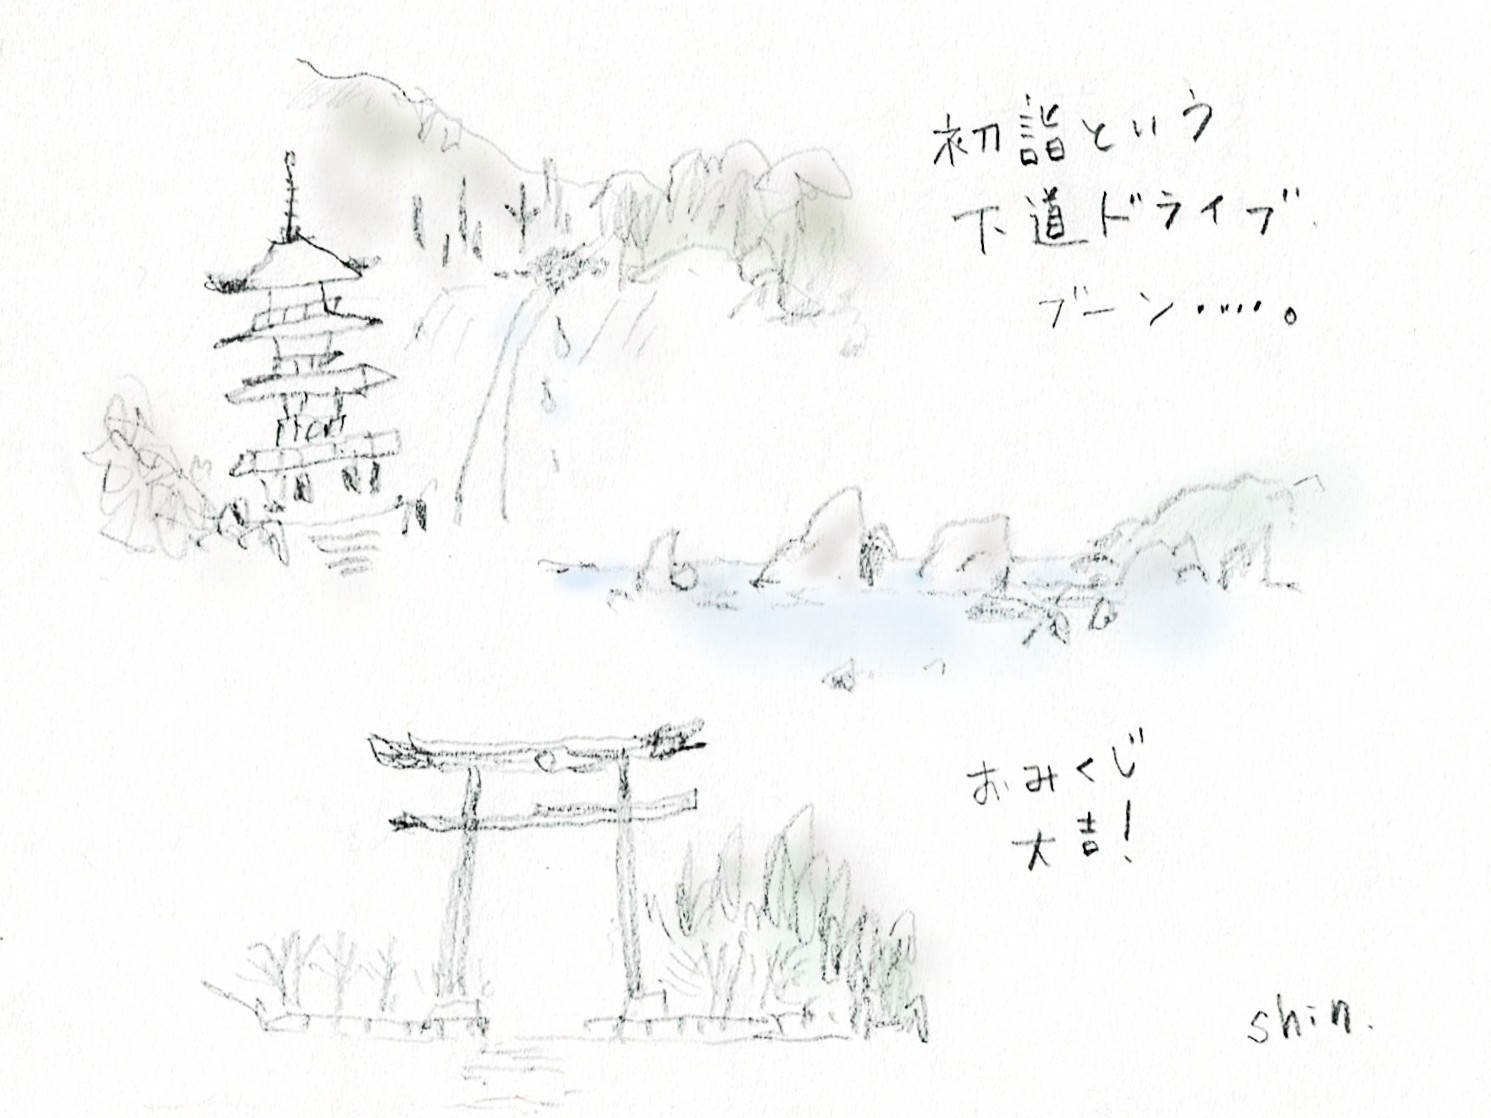 初詣という
下道ドライブ.
ブーン・・・・・。
おみくじ
大吉!
shin.